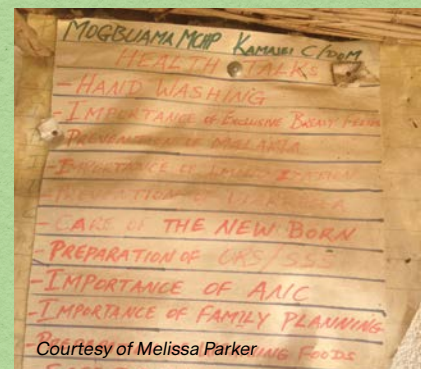 MOGBUAMA MCHP KAMAJEI C/DOM
HEALTH TALKS
- HAND WASHING
- IMPORTANCE of EXCLUSIVE BREAST FEEDING
- PREVENTION OF MALARIA
- IMPORTANCE OF
- PREVENTION OF DIARRHOEA
- CARE OF THE NEW BORN
- PREPARATION OF ORS/SSS
- IMPORTANCE OF ANC
- IMPORTANCE OF FAMILY PLANNING
FOODS
Courtesy of Melissa Parker